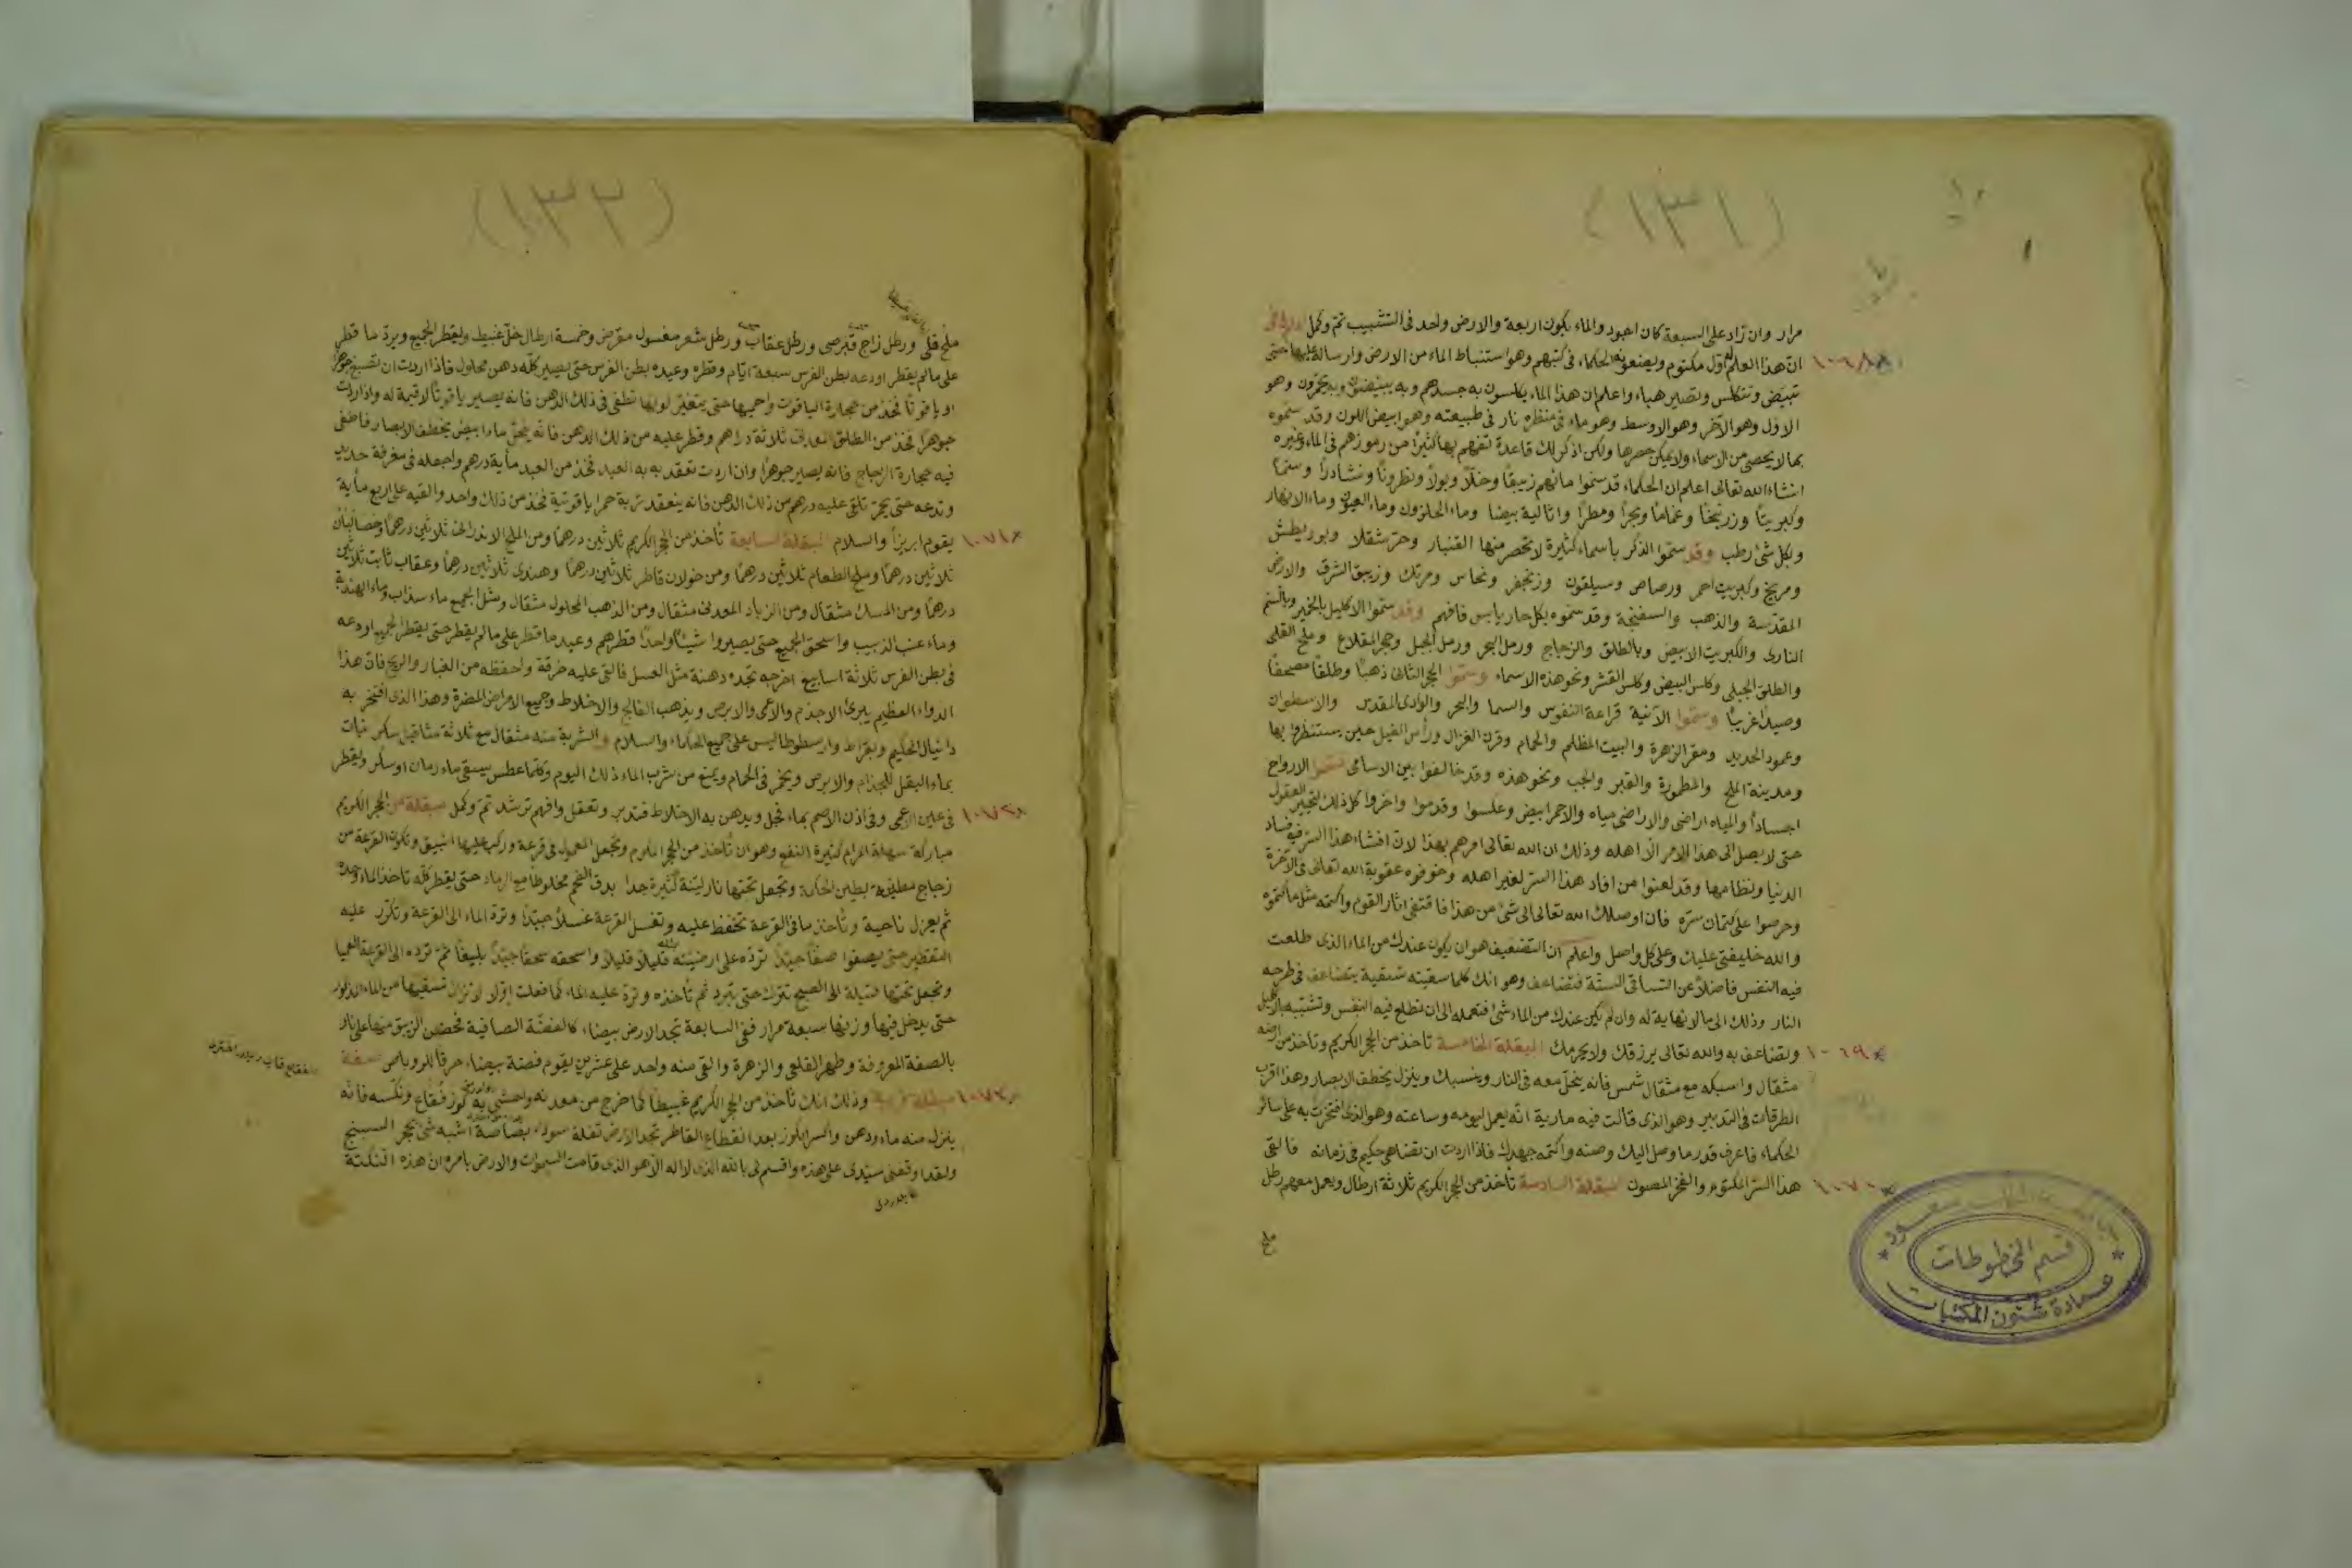 (١٣١)
مرار وان زاد على السبعة كان اجود والماء يكون اربعة والارض واحد فى التشبيب تم وكمل
١٠٦٨ ان هذا العلم اول مكتوم ويعنعونه الحكماء فى كتبهم وهو استنباط الماء من الارض وارساله عليها حتى
تبيض وتتكلس وتصير هباء واعلم ان هذا الماء يكلسون به جسدهم وبه يبيضون وبه يحمرون وهو
الاول وهو الآخر وهو الاوسط وهو ماء فى منظره نار فى طبيعته وهو ابيض اللون وقد سموه
بما لا يحصى من الاسماء ولا يمكن حصرها ولكن اذكر لك قاعدة تفهم بها كثيرا من رموزهم فى الماء وغيره
انشاء الله تعالى اعلم ان الحكماء قد سموا مائهم زيبقا وخلا وبولا ونطرونا ونشادرا وسما
وكبريتا وزرنيخا وغماما وبحرا ومطرا واثالية بيضا وماء الحلزون وماء العيون وماء الانهار
وبكل شئ رطب وقد سموا الذكر باسماء كثيرة لا تحصر منها القنبار وحرشقلا وبوريطش
ومريخ وكبريت احمر ورصاص وسيلقون وزنجفر ونحاس ومرتك وزيبق الشرق والارض
المقدسة والذهب والسفنجة وقد سموه بكل حار يابس فافهم وقد سموا الاكليل بالخمير وبالسم
النارى والكبريت الابيض وبالطلق والزجاج ورمل البحر ورمل الجبل وحجر المقلاع وملح القلى
والطلق الجبلى وكلس البيض وكلس القشر ونحو هذه الاسماء وسموا الحجر الثانى ذهبا وطلقا مصحفا
وصيدا غريبا وسموا الآنية قراعة النفوس والسما والبحر والوادى المقدس والاسطوان
وعمود الحديد ومقر الزهرة والبيت المظلم والحمام وقرن الغزال ورأس الفيل حين يستنظروا بها
ومدينة الملح والمطمورة والقبر والجب ونحو هذه وقد خالفوا بين الاسامى الارواح
اجسادا والمياه اراضى والاراضى مياه والاحمر ابيض وعكسوا وقدموا واخروا كل ذلك لتحير العقول
حتى لا يصل الى هذا الامر الا اهله وذلك ان الله تعالى امرهم بهذا لان افشاء هذا السر فيه فساد
الدنيا ونظامها وقد لعنوا من افاد هذا السر لغير اهله وخوفوه عقوبة الله تعالى فى الآخرة
وحرصوا على كتمان سره فان اوصلك الله تعالى الى شئ من هذا فاقتفى اثار القوم واكتمه مثل ما كتموه
والله خليفتى عليك وعلى كل واصل واعلم ان التضعيف هو ان يكون عندك من الماء الذى طلعت
فيه النفس فاضلا عن التساقى الستة فتضاعف وهو انك كلما سقيته سقية يتضاعف فى طرحه
النار وذلك الى ما لا نهاية له وان لم يكن عندك من الماء شئ فتعمله الى ان تطلع فيه النفس وتشببه
١٠٦٩ وتضاعف به والله تعالى يرزقك ولا يحرمك البقلة الخامسة تأخذ من الحجر الكريم وتأخذ من
مثقال واسبكه مع مثقال شمس فانه ينحل معه فى النار وينسبك وينزل يخطف الابصار وهذا اقرب
الطرقات فى التدبير وهو الذى قالت فيه مارية انه يعمل ليومه وساعته وهو الذى افتخرت به على سائر
الحكماء فاعرف قدر ما وصل اليك وصنه واكتمه جهدك فاذا اردت ان تضاهى حكيم فى زمانه فالتقى
١٠٧٠ هذا السر المكتوم والفخر المصون البقلة السادسة تأخذ من الحجر الكريم ثلاثة ارطال ويعمل معهم رطل
ملح
قسم المخطوطات
عمادة شئون المكتبات
(١٣٢)
ملح قلى ورطل زاج قبرصى ورطل عقاب ورطل شعر مغسول مقرض وخمسة ارطال خل غبيط ويقطر الجميع ويرد ما قطر
على ما لم يقطر اودعه بطن الفرس سبعة ايام وقطره وعيده بطن الفرس حتى يصير كله دهن محلول فاذا اردت ان تصبغ جوهرا
او ياقوتا فخذ من حجارة الياقوت واحميها حتى يتغير لونها تطفى فى ذلك الدهن فانه يصير ياقوتا لا قيمة له واذا اردت
جوهرا فخذ من الطلق المعدنى ثلاثة دراهم وقطر عليه من ذلك الدهن فانه ينحل ماء ابيض يخطف الابصار فاطفى
فيه حجارة الزجاج فانه يصير جوهرا وان اردت تعقد به العبد فخذ من العبد مأية درهم واجعله فى مغرفة حديد
وتدعه حتى يحر تلقى عليه درهم من ذلك الدهن فانه ينعقد تربة حمرا ياقوتية فخذ من ذلك واحد والقيه على اربع مأية
١٠٧١ يقوم ابريزا والسلام البقلة السابعة تأخذ من الحجر الكريم ثلاثين درهما ومن الملح الاندرانى ثلاثين درهما وخصا لبان
ثلاثين درهما وملح الطعام ثلاثين درهما ومن خولان قاطر ثلاثين درهما وهندى ثلاثين درهما وعقاب ثابت ثلاثين
درهما ومن المسك مثقال ومن الزباد المعدنى مثقال ومن الذهب المحلول مثقال ومثل الجميع ماء سذاب وماء الهندبة
وماء عنب الذيب واسحق الجميع حتى يصيروا شيئا واحدا قطرهم وعيد ما قطر على ما لم يقطر حتى يقطر الجميع اودعه
فى بطن الفرس ثلاثة اسابيع اخرجه تجده دهنة مثل العسل فالقى عليه خرقة واحفظه من الغبار والريح فان هذا
الدواء العظيم يبرئ الاجذم والاعمى والابرص ويذهب الفالج والاخلاط وجميع الامراض المضرة وهذا الذى افتخر به
دانيال الحكيم وبقراط وارسطوطاليس على جميع الحكماء والسلام والشربة منه مثقال مع ثلاثة مثاقيل سكر نبات
بماء البقل للجذام والابرص ويخمر فى الحمام ويمنع من شرب الماء ذلك اليوم وكلما عطس يسقى ماء رمان او سكر ويقطر
١٠٧٢ فى عين الاعمى وفى اذن الاصم بماء فجل ويدهن به الاختلاط فتدبر وتعقل وافهم ترشد تم وكمل بقلة من الحجر الكريم
مباركة سهلة المرام كثيرة النفع وهو ان تأخذ من الحجر المكرم وتجعل المعمول فى قرعة وركب عليها انبيق وتكون القرعة من
زجاج مطينة بطين الحكمة وتجعل تحتها نار لينة كثيرة جدا بدق الفحم مخلوطا مع الرماد حتى يقطر كله تاخذ الماء وحده
ثم يعزل ناحية وتأخذ ما فى القرعة تحفظ عليه وتغسل القرعة غسلا جيدا وترد الماء الى القرعة وتكرر عليه
التقطير حتى يصفوا صفا جيدا ترده على ارضيته قليلا قليلا واسحقه سحقا جيدا بليغا ثم ترده الى القرعة العميا
وتجعل تحتها فتيلة الى الصبح تترك حتى تبرد ثم تأخذه وترد عليه الماء كما فعلت اولا لا تزال تسقيها من الماء المذكور
حتى يدخل فيها وزنها سبعة مرار ففى السابعة تجد الارض بيضاء كالفضة الصافية فخض الزيبق منها على نار
بالصفة المعروفة وطهر القلعى والزهرة والقى منه واحد على عشرين يقوم فضة بيضاء حرقا للروباص
١٠٧٣ وذلك انك تأخذ من الحجر الكريم غبيطا كما خرج من معدنه واحشى به كوز فقاع ونكسه فانه
ينزل منه ماء ودهن واكسر الكوز بعد انقطاع القاطر تجد الارض تفلة سوداء بصاصة اشبه شئ بحجر السبج
ولقد اوقفنى سيدى على هذه واقسم لى بالله الذى لا اله الا هو الذى قامت السموات والارض بامره ان هذه النكتة